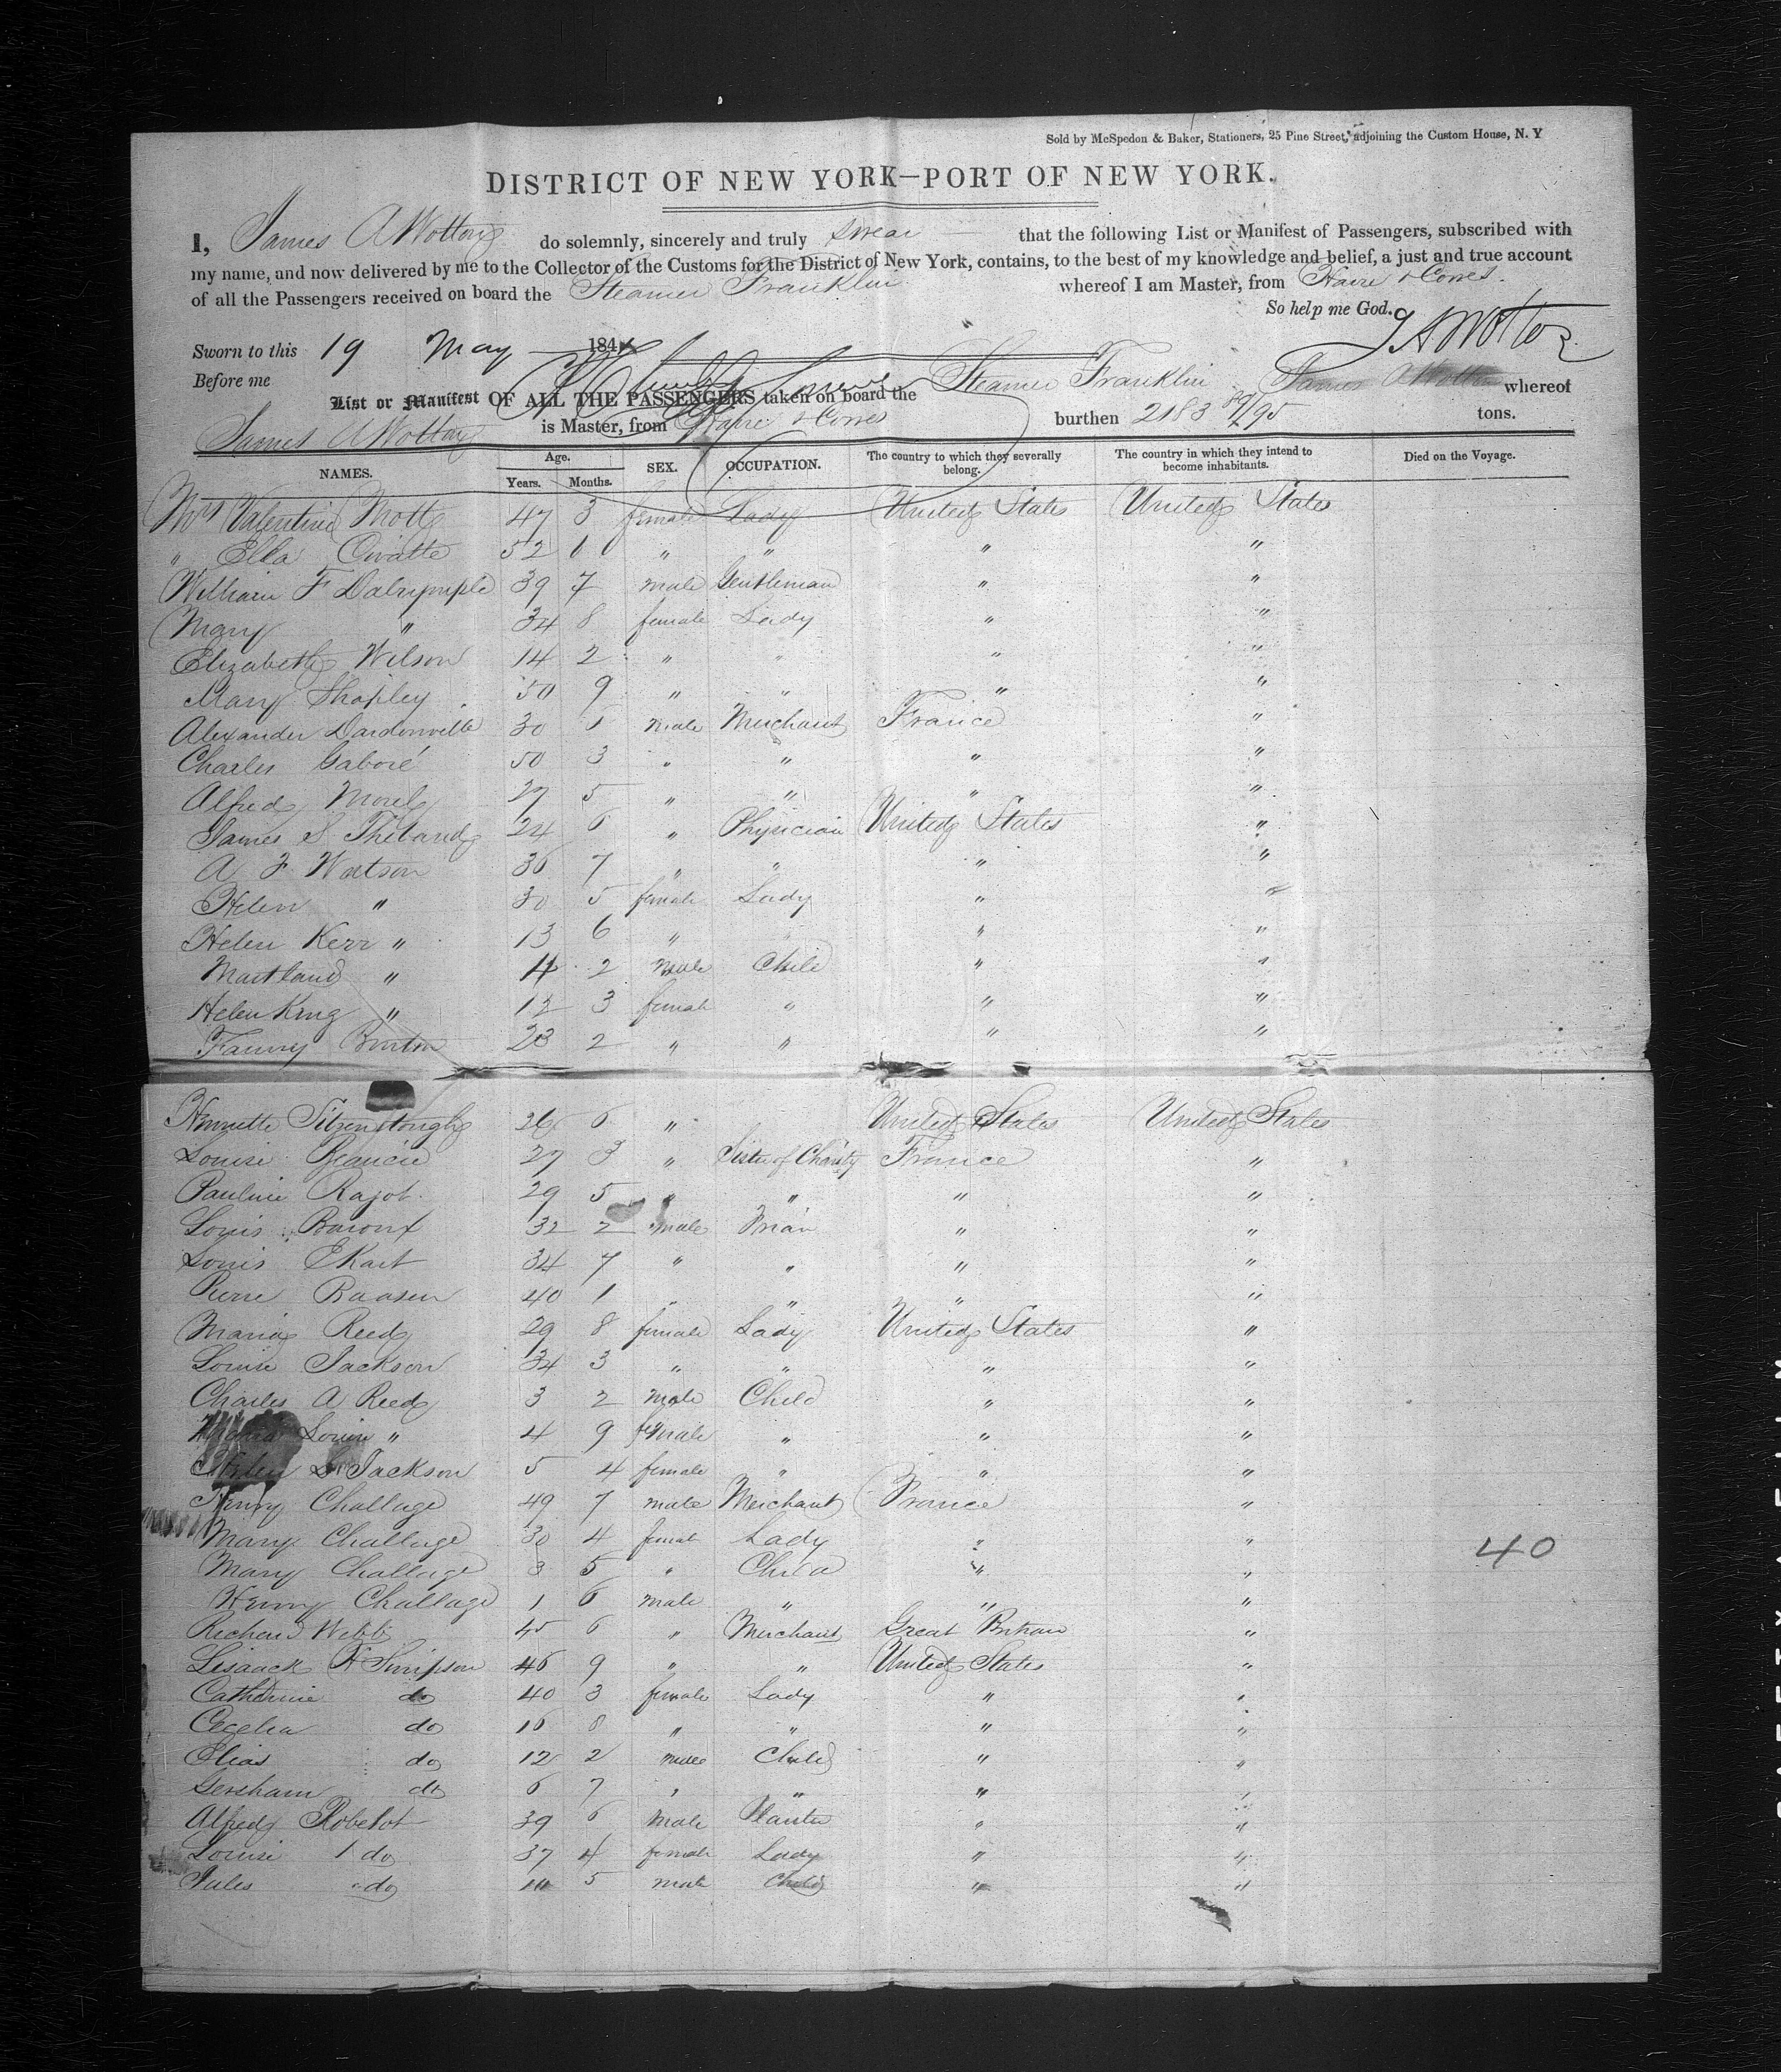 Sold by McSpedon & Baker, Stationers, 25 Pine Street, adjoining the Custom House, N. Y
DISTRICT OF NEW YORK—PORT OF NEW YORK.
I, James A Wotton do solemnly, sincerely and truly swear that the following List or Manifest of Passengers, subscribed with
my name, and now delivered by me to the Collector of the Customs for the District of New York, contains, to the best of my knowledge and belief, a just and true account
of all the Passengers received on board the Steamer Franklin whereof I am Master, from Havre & Cowes.
So help me God.
J A Wotton
Sworn to this 19 May 184
Before me
List or Manifest OF ALL THE PASSENGERS taken on board the Steamer Franklin James A Wotton whereof
James A Wotton is Master, from Havre & Cowes burthen 2183 89/95 tons.
NAMES. Age. Years. Months. SEX. OCCUPATION. The country to which they severally belong. The country in which they intend to become inhabitants. Died on the Voyage.
Mrs Valentine Mott 47 3 female Lady United States United States
" Ella 52 " " " "
William F Dalrymple 39 7 male Gentleman " "
Mary " 34 8 female Lady " "
Elizabeth Wilson 14 2 " " " "
Mary Shapley 50 9 " " " "
Alexander Dardonville 30 6 male Merchant France "
Charles Gaboré 50 3 " " " "
Alfred Morel 27 5 " " " "
James S Thebaud 24 6 " Physician United States "
A F Watson 36 7 " " " "
Helen " 30 5 female Lady " "
Helen Kerr " 13 6 " " " "
Maitland " 4 2 male Child " "
Helen King " 12 3 female " " "
Fanny Burton 23 2 " " " "
26 6 " United States United States
Louise 27 3 " Sister of Charity France "
Pauline Rajot 29 5 " " " "
Louis 32 2 male " "
Louis Ekart 34 7 " " " "
Pierre 40 1 " " " "
Maria Reed 29 8 female Lady United States "
Louise Jackson 34 3 " " " "
Charles A Reed 3 2 male Child " "
Louise " 4 9 female " " "
Helen L Jackson 5 4 female " " "
Henry Challage 49 7 male Merchant France "
Mary Challage 30 4 female Lady " "
40
Mary Challage 3 5 " Child " "
Henry Challage 1 6 male " " "
Richard Webb 45 6 " Merchant Great Britain "
H Simpson 46 9 " " United States "
Catherine do 40 3 female Lady " "
Cecelia do 16 8 " " " "
Elias do 12 2 male Child " "
Gersham do 6 7 " " " "
Alfred Robelot 39 6 male Planter " "
Louise do 37 4 female Lady " "
Jules do 5 male Child " "